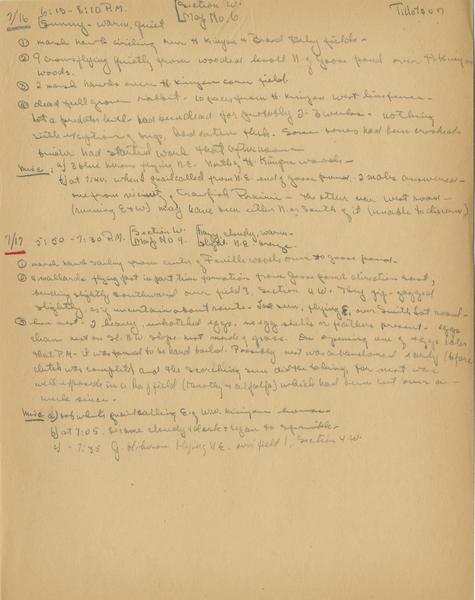 7/16 6:15-8:10 P.M. Section W. Tillotson
Sunny - warm, quiet Map No. 6
① marsh hawk circling over H Kingan & Broad fields -
② 9 crows flying quietly from wooded knoll N of goose pond over H Kingan
woods.
③ 2 marsh hawks over H Kingan corn field.
④ dead full grown rabbit - 10 paces from H Kingan west line fence -
Not a predator kill - had been dead for probably 2-3 weeks - nothing
with exception of bugs, had eaten flesh. Some bones had been
had started work that afternoon -
misc: a) flying N.E. North of H. Kingan woods -
b) at 7:40 - when quail called from N.E. end of goose pond, 2 males answered -
one from vicinity of Crawfish Prairie - the other near west road -
(running E & W) may have been either N. or South of it (unable to discern)
7/17 5:50 - 7:30 P.M. Section W. cloudy, warm -
Map No 4. slight N.E.
① marsh hawk sailing from center of Faville woods over to goose pond.
② 2 mallards flying fast in part time formation from goose pond direction east,
slightly southward over field 3, Section 4 W. They zig-zagged
slightly, as if uncertain about route. Last seen, flying E, over Smith road -
③ hen nest - 2 heavy, unhatched eggs, no egg shells or feathers present - eggs
On opening one of eggs later
that P.M. it was found to be hard boiled. Possibly nest was abandoned early (before
clutch was complete) and the scorching sun did the baking, for nest was
well exposed in a hayfield (timothy & alfalfa) which had been cut over a
week since -
misc a) bob white quail calling E of W.W. Kingan house -
b) at 7:05, became cloudy & dark & began to sprinkle -
c) - 7:25 flying N E. over field 1, Section 4 W.